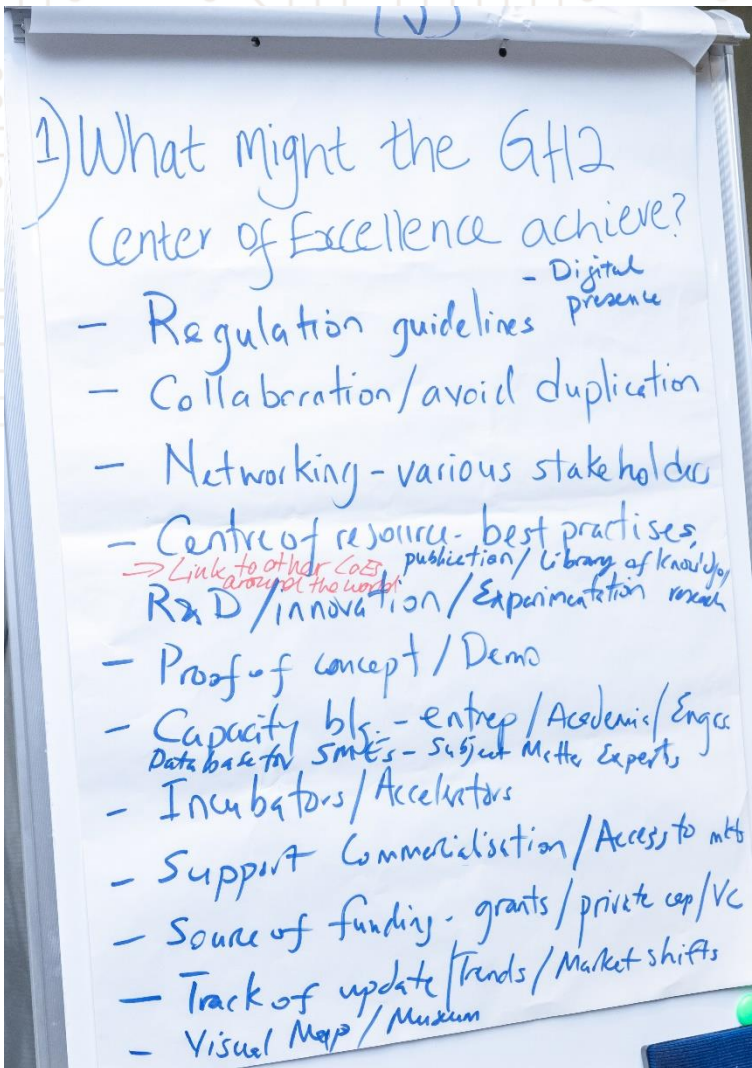 1) What might the GH2
Center of Excellence achieve?
- Digital
presence
- Regulation guidelines
- Collaboration/avoid duplication
- Networking - various stakeholders
- Centre of resource - best practises,
publication/ Library of knowledge/
=> Link to other CoEs
around the world
R&D/innovation/Experimentation
- Proof of concept/Demo
- Capacity - entrep/Academic/
Database for SMEs - Subject Matter Experts
- Incubators/Accelerators
- Support Commercialisation/Access to mkts
- Source of funding - grants/private cap/VC
- Track of update/Trends/Market shifts
- Visual Map/Museum